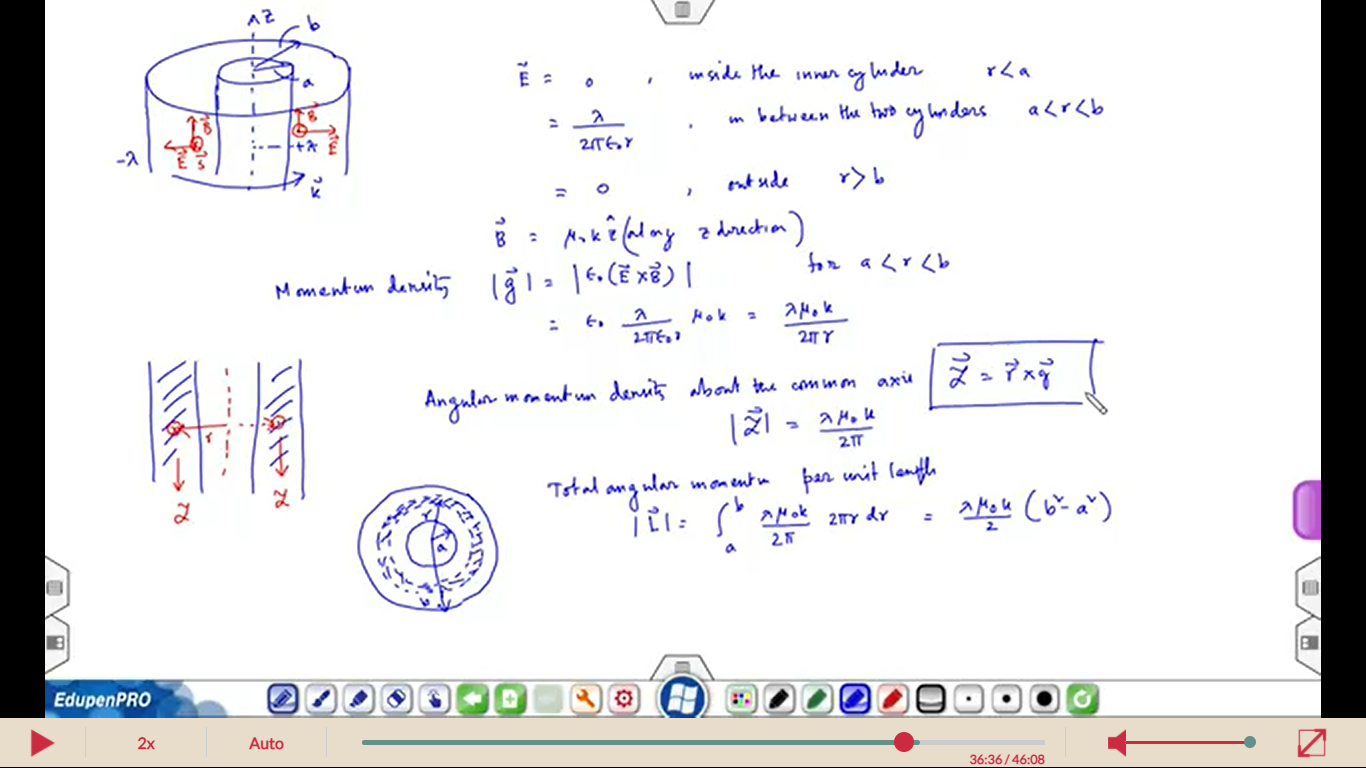 z
b
a
B
B
E
S
E
-λ
+λ
K
E⃗ = 0 , inside the inner cylinder r < a
= λ/2πε₀r , in between the two cylinders a < r < b
= 0 , outside r > b
B⃗ = μ₀k ẑ (along z direction)
for a < r < b
Momentum density |g⃗| = |ε₀(E⃗ × B⃗)|
= ε₀ λ/2πε₀r μ₀k = λμ₀k/2πr
Angular momentum density about the common axis ℒ⃗ = r⃗ × g⃗
|ℒ⃗| = λμ₀k/2π
r
ℒ
ℒ
Total angular momentum per unit length
|L⃗| = ∫ₐᵇ λμ₀k/2π 2πr dr = λμ₀k/2 (b² - a²)
r
a
b
EdupenPRO
2x
Auto
36:36 / 46:08